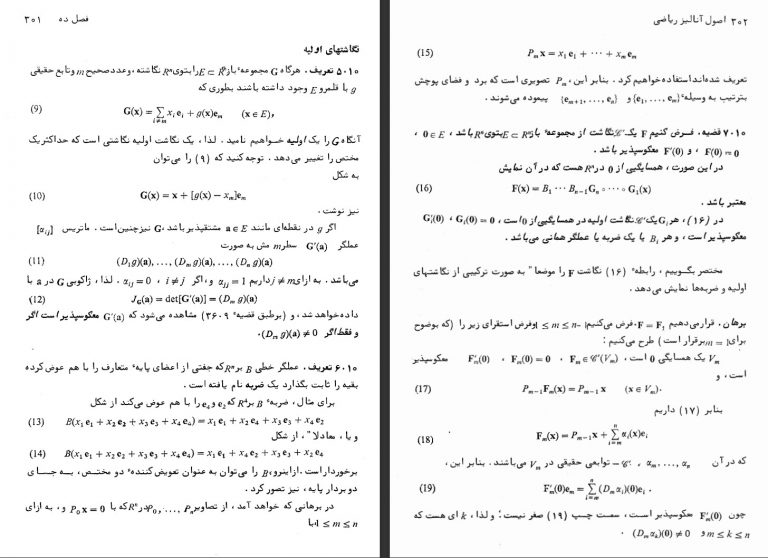 فصل ده ۳۰۱
نگاشتهای اولیه
۱۰ر۵ تعریف. هرگاه G مجموعهٔ باز E ⊂ Rⁿ را بتوی Rⁿ نگاشته، و عدد صحیح m و تابع حقیقی
g با قلمرو E وجود داشته باشند بطوری که
(9) G(x) = ∑_{i≠m} xᵢeᵢ + g(x)eₘ (x ∈ E),
آنگاه G را یک اولیه خواهیم نامید. لذا، یک نگاشت اولیه نگاشتی است که حداکثر یک
مختص را تغییر می‌دهد. توجه کنید که (۹) را می‌توان
به شکل
(10) G(x) = x + [g(x) − xₘ]eₘ
نیز نوشت.
اگر g در نقطه‌ای مانند a ∈ E مشتقپذیر باشد، G نیز چنین است. ماتریس [αᵢⱼ]
عملگر G′(a) سطر m مش به صورت
(11) (D₁g)(a), ..., (Dₘg)(a), ..., (Dₙg)(a)
می‌باشد. به ازای j ≠ m داریم αⱼⱼ = 1 و، اگر i ≠ j، αᵢⱼ = 0. لذا، ژاکوبی G در a با
(12) J_G(a) = det[G′(a)] = (Dₘg)(a)
داده خواهد شد، و (برطبق قضیهٔ ۹ر۳۶) مشاهده می‌شود که G′(a) معکوسپذیر است اگر
و فقط اگر (Dₘg)(a) ≠ 0.
۱۰ر۶ تعریف. عملگر خطی B بر Rⁿ که جفتی از اعضای پایهٔ متعارف را با هم عوض کرده
بقیه را ثابت بگذارد یک ضربه نام یافته است.
برای مثال، ضربهٔ B بر R⁴ که e₂ و e₄ را با هم عوض می‌کند از شکل
(13) B(x₁e₁ + x₂e₂ + x₃e₃ + x₄e₄) = x₁e₁ + x₂e₄ + x₃e₃ + x₄e₂
و یا، معادلا"، از شکل
(14) B(x₁e₁ + x₂e₂ + x₃e₃ + x₄e₄) = x₁e₁ + x₄e₂ + x₃e₃ + x₂e₄
برخوردار است. از اینرو، B را می‌توان به عنوان تعویض کنندهٔ دو مختص، به جای
دو بردار پایه، نیز تصور کرد.
در برهانی که خواهد آمد، از تصاویر P₀, ..., Pₙ در Rⁿ که با P₀x = 0 و، به ازای
1 ≤ m ≤ n، با
۳۰۲ اصول آنالیز ریاضی
(15) Pₘx = x₁e₁ + ⋯ + xₘeₘ
تعریف شده‌اند استفاده خواهیم کرد. بنابر این، Pₘ تصویری است که برد و فضای پوچش
بترتیب به وسیلهٔ {e₁, ..., eₘ} و {eₘ₊₁, ..., eₙ} پیموده می‌شوند.
۱۰ر۷ قضیه. فرض کنیم F یک 𝒞′ نگاشت از مجموعهٔ باز E ⊂ Rⁿ بتوی Rⁿ باشد، 0 ∈ E،
F(0) = 0، و F′(0) معکوسپذیر باشد.
در این صورت، همسایگیی از 0 در Rⁿ هست که در آن نمایش
(16) F(x) = B₁ ⋯ Bₙ₋₁Gₙ ∘ ⋯ ∘ G₁(x)
معتبر باشد.
در (۱۶)، هر Gᵢ یک 𝒞′ نگاشت اولیه در همسایگیی از 0 است، Gᵢ(0) = 0، G′ᵢ(0)
معکوسپذیر است، و هر Bᵢ یا یک ضربه یا عملگر همانی می‌باشد.
مختصر بگوییم، رابطهٔ (۱۶) نگاشت F را موضعا" به صورت ترکیبی از نگاشتهای
اولیه و ضربه‌ها نمایش می‌دهد.
برهان. قرار می‌دهیم F = F₁. فرض می‌کنیم 1 ≤ m ≤ n−1 و فرض استقرای زیر را (که بوضوح
برای m = 1 برقرار است) طرح می‌کنیم:
Vₘ یک همسایگی 0 است، Fₘ ∈ 𝒞′(Vₘ)، Fₘ(0) = 0، F′ₘ(0) معکوسپذیر
است، و
(17) Pₘ₋₁Fₘ(x) = Pₘ₋₁x (x ∈ Vₘ).
بنابر (۱۷) داریم
(18) Fₘ(x) = Pₘ₋₁x + ∑_{i=m}^{n} αᵢ(x)eᵢ
که در آن αₘ, ..., αₙ، 𝒞′ − توابعی حقیقی در Vₘ می‌باشند. بنابر این،
(19) F′ₘ(0)eₘ = ∑_{i=m}^{n} (Dₘαᵢ)(0)eᵢ.
چون F′ₘ(0) معکوسپذیر است، سمت چپ (۱۹) صفر نیست؛ و لذا، k ای هست که
m ≤ k ≤ n و (Dₘαₖ)(0) ≠ 0.